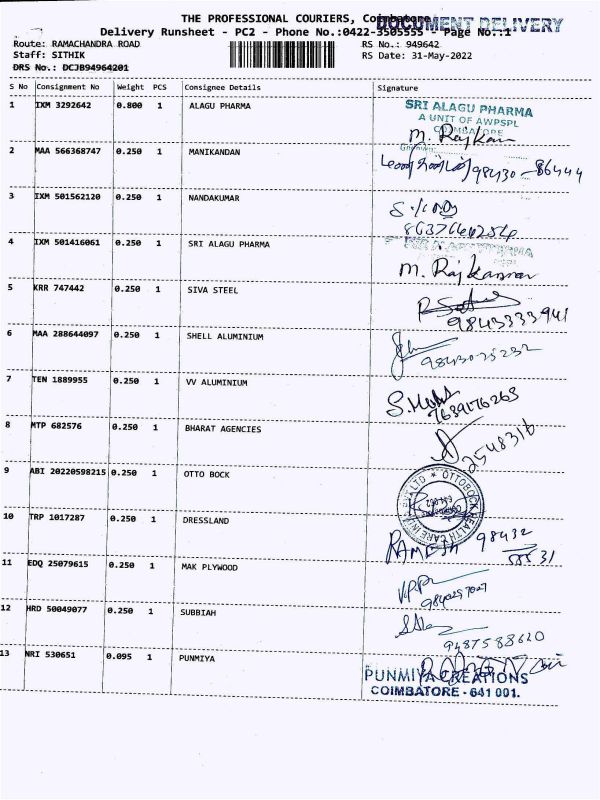 THE PROFESSIONAL COURIERS, Coimbatore
DOCUMENT DELIVERY
Delivery Runsheet - PC2 - Phone No.:0422-3505555 - Page No.:1
Route: RAMACHANDRA ROAD RS No.: 949642
Staff: SITHIK RS Date: 31-May-2022
DRS No.: DCJB94964201
S No Consignment No Weight PCS Consignee Details Signature
1 IXM 3292642 0.800 1 ALAGU PHARMA
SRI ALAGU PHARMA
A UNIT OF AWPSPL
COIMBATORE
M. Rajkannan
2 MAA 566368747 0.250 1 MANIKANDAN
98430-86444
3 IXM 501562120 0.250 1 NANDAKUMAR
4 IXM 501416061 0.250 1 SRI ALAGU PHARMA
M. Rajkannan
5 KRR 747442 0.250 1 SIVA STEEL
9843333941
6 MAA 288644097 0.250 1 SHELL ALUMINIUM
9843075232
7 TEN 1889955 0.250 1 VV ALUMINIUM
7639176263
8 MTP 682576 0.250 1 BHARAT AGENCIES
2548316
9 ABI 20220598215 0.250 1 OTTO BOCK
OTTOBOCK HEALTH CARE INDIA PVT LTD
10 TRP 1017287 0.250 1 DRESSLAND
RAMESH 98432
11 EDQ 25079615 0.250 1 MAK PLYWOOD
12 HRD 50049077 0.250 1 SUBBIAH
9487588620
13 NRI 530651 0.095 1 PUNMIYA
PUNMIYA CREATIONS
COIMBATORE - 641 001.